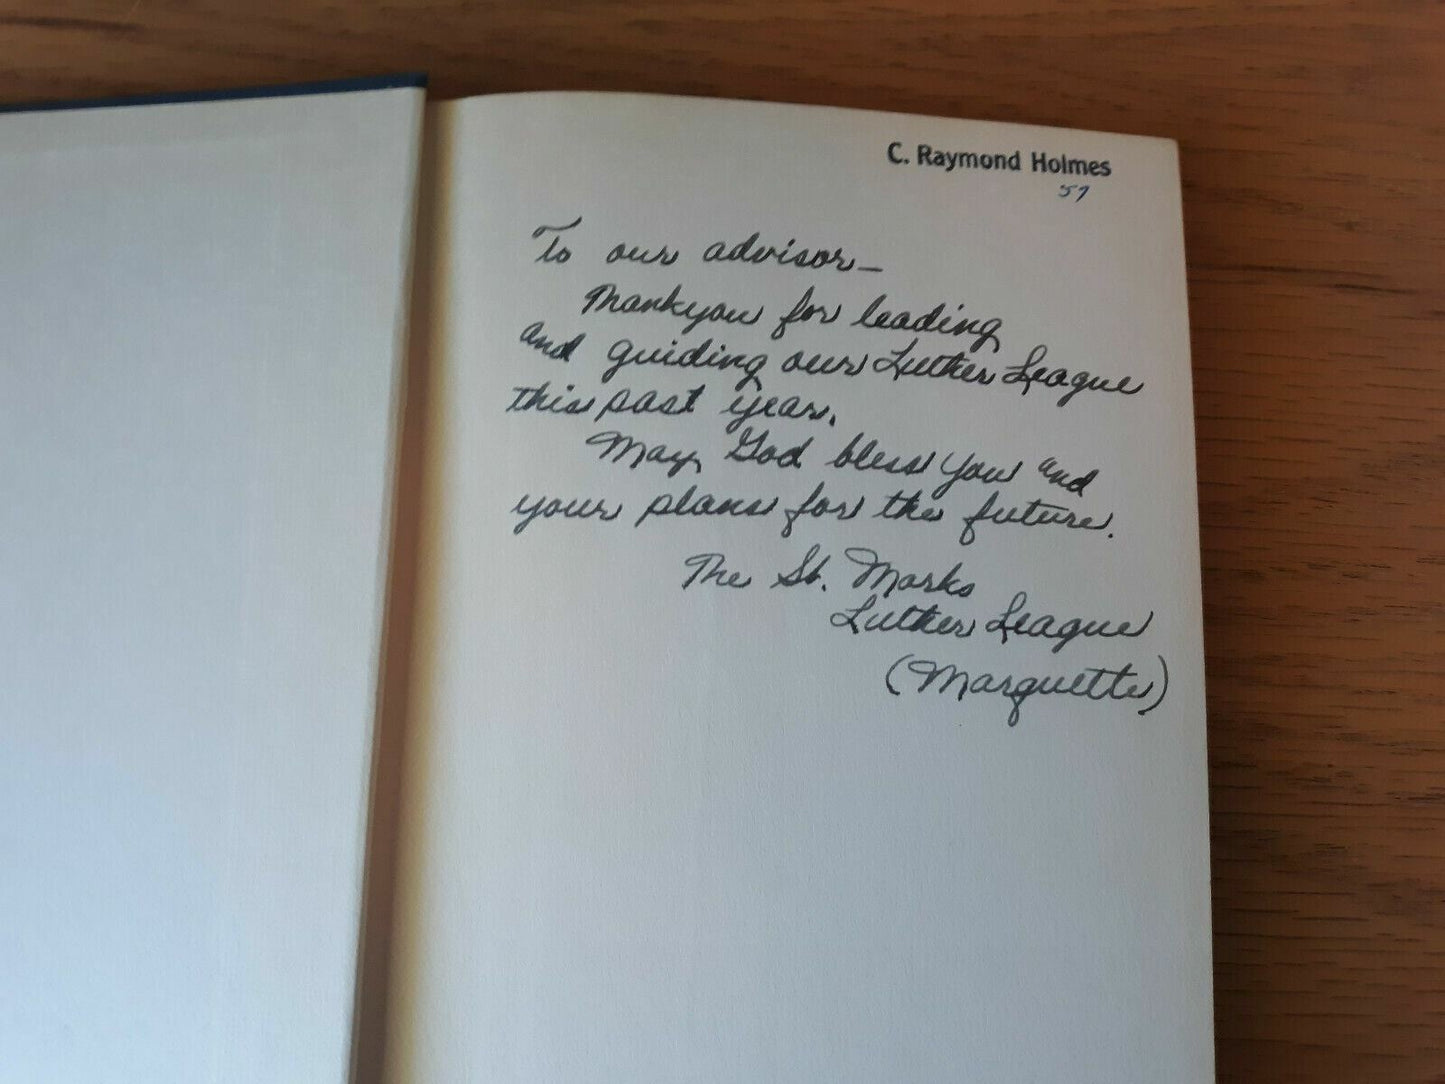 C. Raymond Holmes
57
To our advisor—
Thankyou for leading
and guiding our Luther League
this past year.
May God bless you and
your plans for the future.
The St. Marks
Luther League
(Marquette)